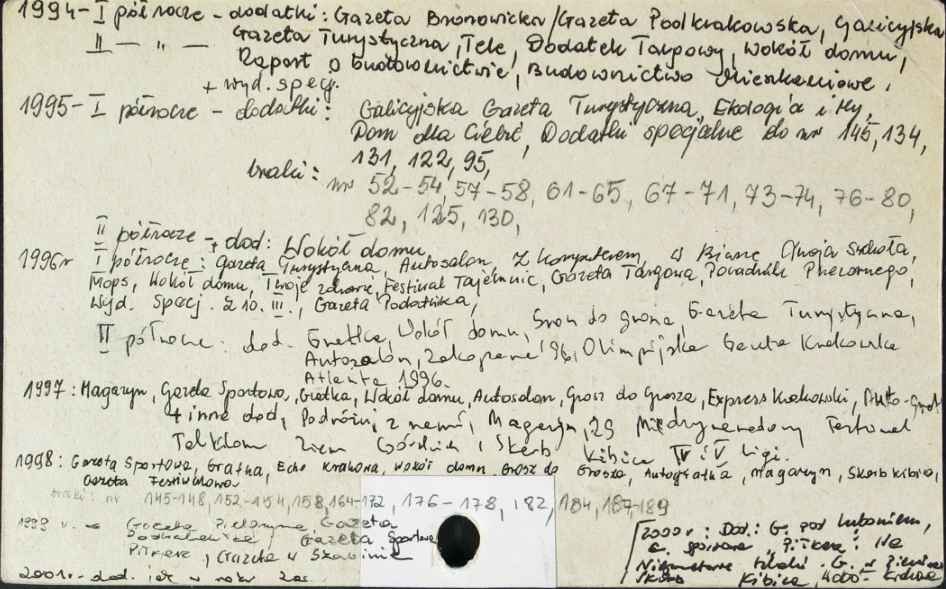 1994 - I półrocze - dodatki: Gazeta Bronowicka / Gazeta Podkrakowska, Galicyjska
II — " — Gazeta Turystyczna, Tele, Dodatek Targowy, Wokół domu,
Raport o budownictwie, Budownictwo Mieszkaniowe,
+ wyd. specj.
1995 - I półrocze - dodatki: Galicyjska Gazeta Turystyczna, Ekologia i My,
Dom dla Ciebie, Dodatki specjalne do nr 145, 134,
131, 122, 95,
braki: nr 52-54, 57-58, 61-65, 67-71, 73-74, 76-80,
82, 125, 130,
II półrocze - + dod: Wokół domu
1996r I półrocze: Gazeta Turystyczna, Autosalon, Z komputerem, Moja szkoła,
Mops, Wokół domu, Twoje zdrowie, Festiwal Tajemnic, Gazeta Targowa, Poradnik
Wyd. Specj. z 10. III., Gazeta Podatnika,
II półrocze: dod. Gratka, Wokół domu, Grosz do grosza, Gazeta Turystyczna,
Autosalon, Zakopane '96, Olimpijska Gazeta Krakowska
Atlanta 1996.
1997: Magazyn, Gazeta Sportowa, Gratka, Wokół domu, Autosalon, Grosz do Grosza, Express Krakowski, Auto-Gratka
+ inne dod, Podróżuj z nami, Magazyn, 29 Międzynarodowy Festiwal
Folkloru Ziem Górskich, Skarb Kibica IV i V ligi.
1998: Gazeta Sportowa, Gratka, Echo Krakowa, Wokół domu, Grosz do Grosza, Autogratka, Magazyn, Skarb kibica,
Gazeta Festiwalowa
braki: nr 145-148, 152-154, 158, 164-172, 176-178, 182, 184, 187-189
1999 Gazeta Gazeta
Gazeta Sportowa
Gazeta w
2000r: Dod.: G. pod Luboniem,
G. sportowa, Piłkarz:
G. w
Kibica, Wokół Krakowa
2001r. - dod. jak w roku